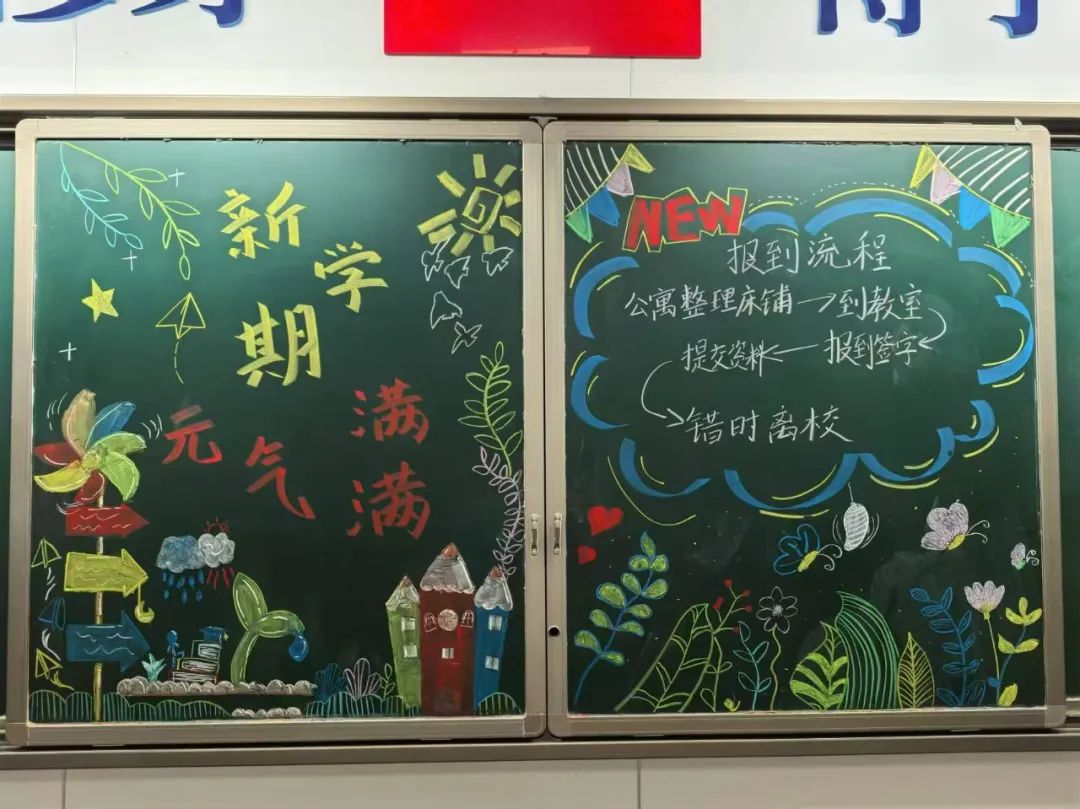 新学期
元气满满
NEW
报到流程
公寓整理床铺→到教室
提交资料←报到签字
错时离校